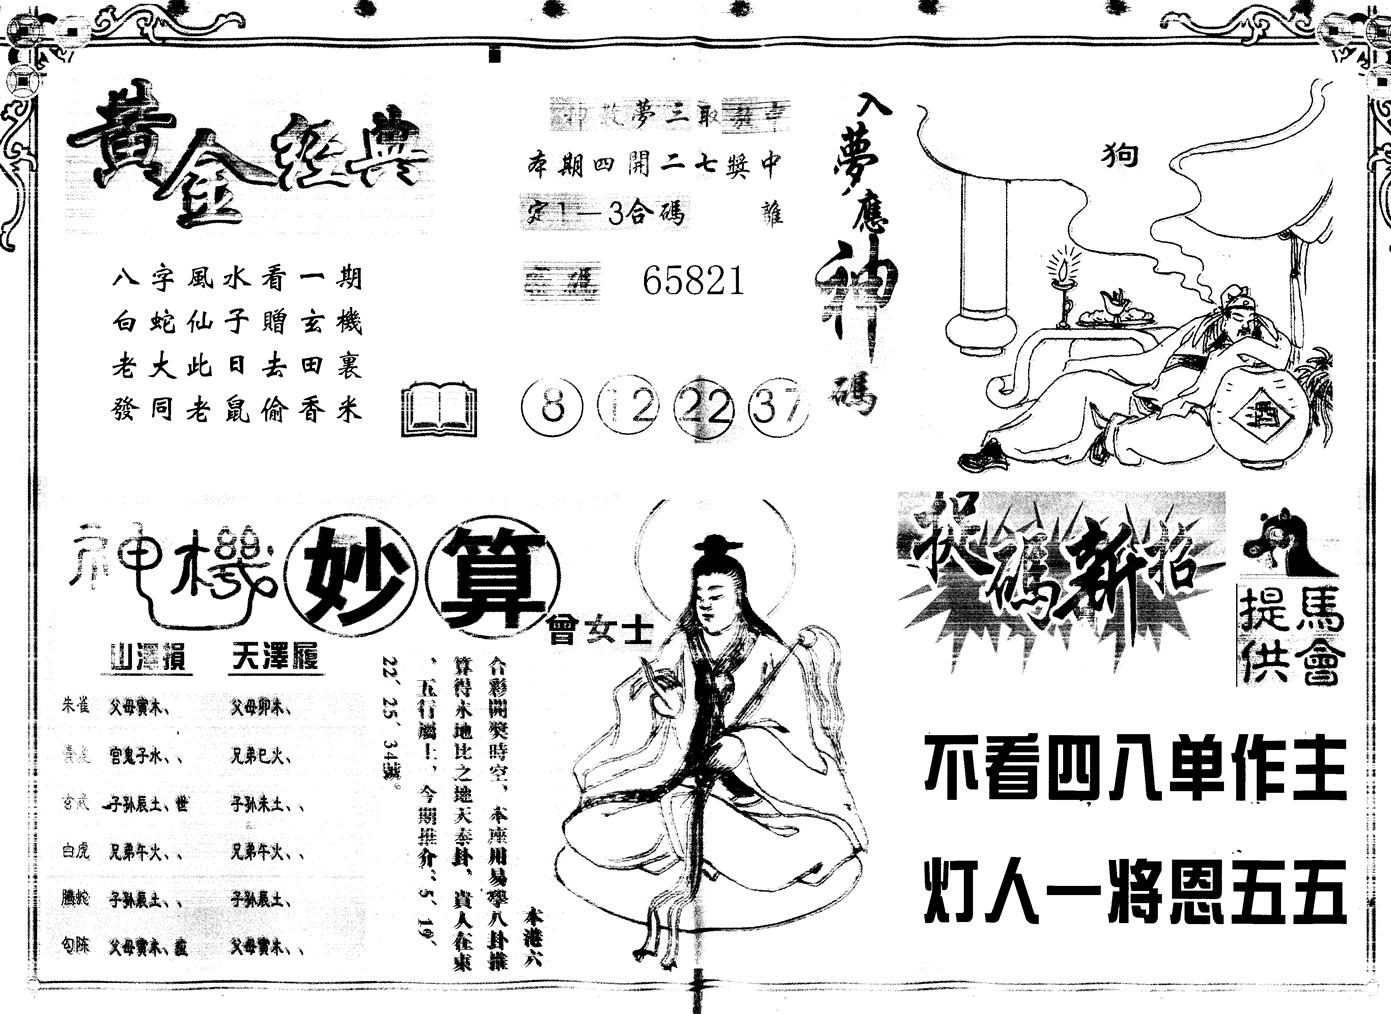 黃金經典
八字風水看一期
白蛇仙子贈玄機
老大此日去田裏
發同老鼠偷香米
夢三取
本期四開二七獎中
定1—3合碼 誰
碼 65821
8 12 22 37
入夢應神碼
狗
酒
神機妙算
曾女士
山澤損 天澤履
朱雀 父母寅木、、 父母卯木、
官鬼子水、、 兄弟巳火、
玄武 子孙辰土、世 子孙未土、、
白虎 兄弟午火、、 兄弟午火、、
騰蛇 子孙辰土、、 子孙辰土、
勾陈 父母寅木、 父母寅木、、
本港六
合彩開獎時空，本座用易學八卦推
算得水地比之地天泰卦，貴人在東
，五行屬土，今期推介：5、19、
22、25、34號。
捉碼新招
馬會
提供
不看四八单作主
灯人一將恩五五